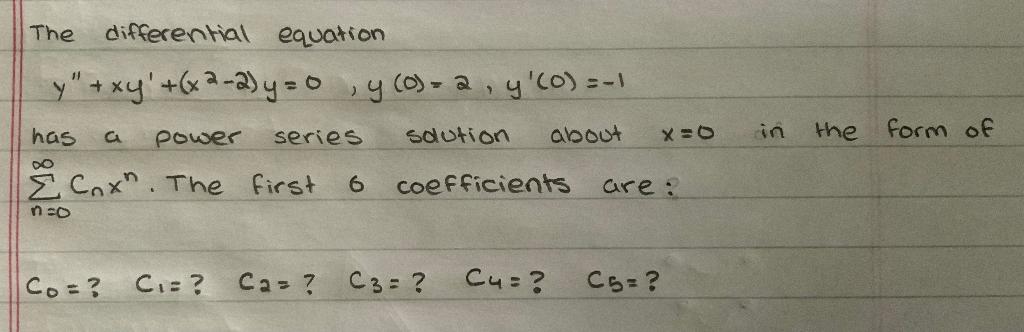 The differential equation
y" + xy' + (x²-2)y = 0 , y(0) = 2 , y'(0) = -1
has a power series solution about x=0 in the form of
∞
Σ Cₙxⁿ. The first 6 coefficients are:
n=0
C₀ = ? C₁ = ? C₂ = ? C₃ = ? C₄ = ? C₅ = ?